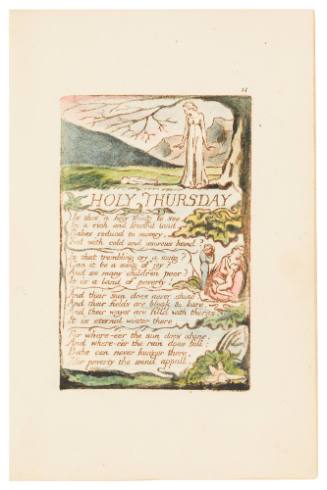 HOLY THURSDAY
Is this a holy thing to see
In a rich and fruitful land,
Babes reduced to misery,
Fed with cold and usurous hand?
Is that trembling cry a song?
Can it be a song of joy?
And so many children poor?
It is a land of poverty!
And their sun does never shine
And their fields are bleak & bare
And their ways are fill'd with thorns
It is eternal winter there
For where-e'er the sun does shine,
And where-e'er the rain does fall:
Babe can never hunger there,
Nor poverty the mind appall.